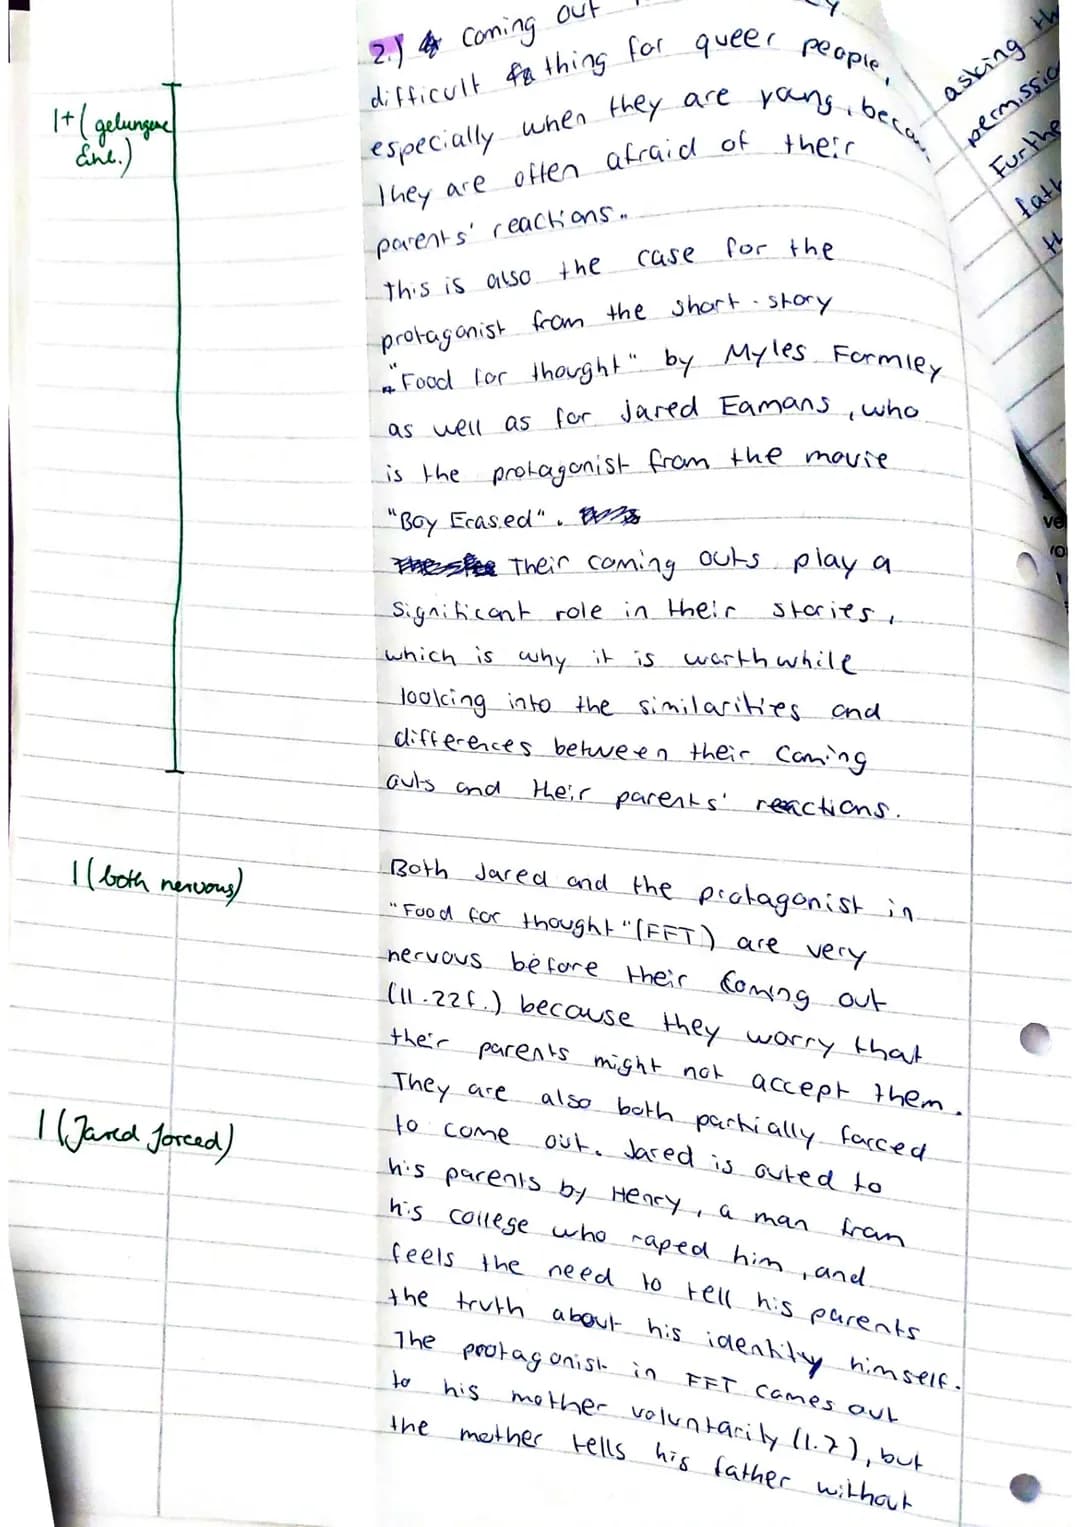 2.) Coming out
difficult thing for queer people,
1+ (gelungene
Einl.)
especially when they are young, beca
They are often afraid of their
parents' reactions.
This is also the case for the
protagonist from the short-story
"Food for thought" by Myles Formley
as well as for Jared Eamans, who
is the protagonist from the movie
"Boy Erased".
Their coming outs play a
significant role in their stories,
which is why it is worthwhile
looking into the similarities and
differences between their coming
outs and their parents' reactions.
1 (both nervous)
Both Jared and the protagonist in
"Food for thought" (FFT) are very
nervous before their coming out
(ll.22f.) because they worry that
their parents might not accept them.
They are also both partially forced
1 (Jared forced)
to come out. Jared is outed to
his parents by Henry, a man from
his college who raped him, and
feels the need to tell his parents
the truth about his identity himself.
The protagonist in FFT comes out
to his mother voluntarily (l.7), but
the mother tells his father without
asking th
permissio
Furthe
fath
th